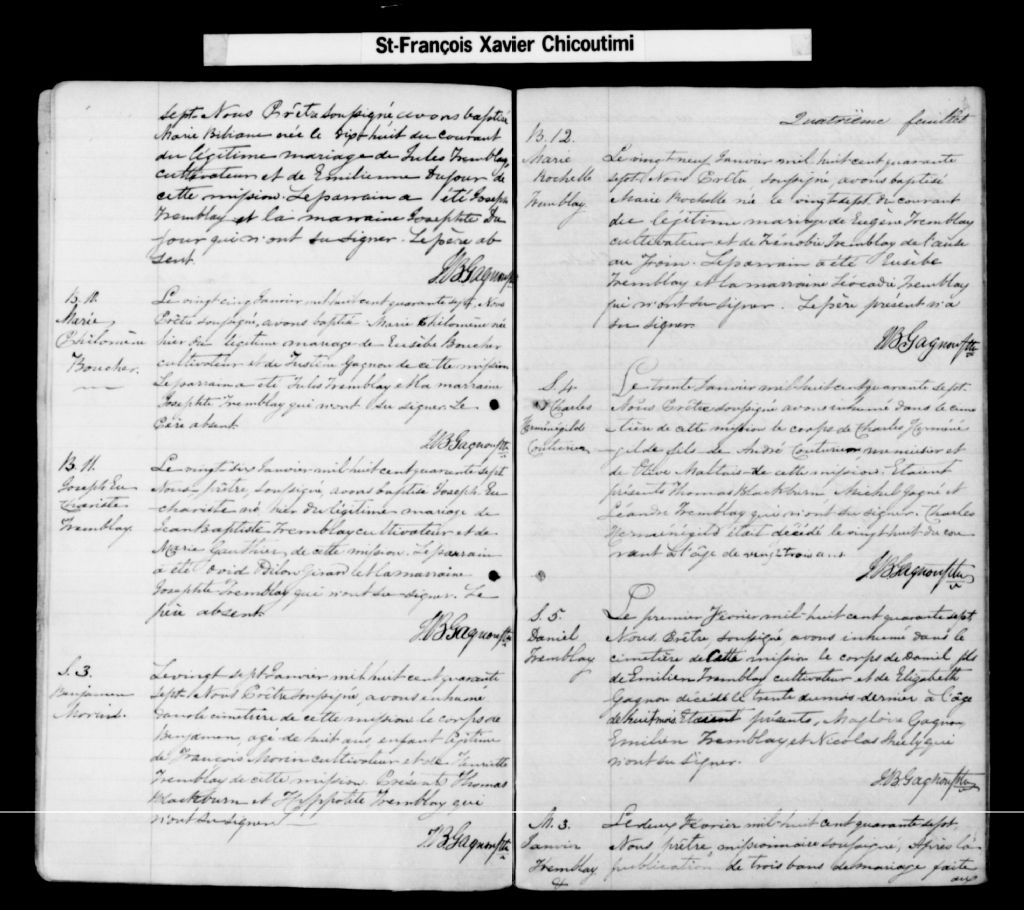 St-François Xavier Chicoutimi
sept. Nous Prêtre soussigné avons baptisé
Marie Biliane née le dix huit du courant
du légitime mariage de Jules Tremblay,
cultivateur et de Emilienne Dufour de
cette mission. Le parrain a été Joseph
Tremblay et la marraine Josephte Du
four qui n'ont su signer. Le père ab
sent.
JBGagnon Ptre
B. 10.
Marie
Philomène
Boucher.
Le vingt cinq Janvier mil huit cent quarante sept, Nous
Prêtre soussigné, avons baptisé Marie Philomène née
hier du légitime mariage de Eusèbe Boucher
cultivateur et de Justine Gagnon de cette mission
Le parrain a été Jules Tremblay et la marraine
Josephte Tremblay qui n'ont su signer. Le
Père absent.
JBGagnon Ptre
B. 11.
Joseph Eu
chariste
Tremblay.
Le vingt six Janvier mil huit cent quarante sept
Nous prêtre, soussigné, avons baptisé Joseph Eu-
chariste né hier du légitime mariage de
Jean Baptiste Tremblay cultivateur et de
Marie Gauthier de cette mission. Le parrain
a été Ovid Dilon Girard et la marraine
Josephte Tremblay qui n'ont su signer. Le
père absent.
JBGagnon Ptre
S. 3.
Benjamen
Morin.
Le vingt sept Janvier mil huit cent quarante
sept. Nous Prêtre soussigné, avons inhumé
dans le cimetière de cette mission le corps de
Benjamen, agé de huit ans, enfant légitime
de François Morin cultivateur et de Henriette
Tremblay de cette mission. Présents Thomas
Blackburn et Hyppolite Tremblay qui
n'ont su signer.
JBGagnon Ptre
Quatrième feuillet
B. 12.
Marie
Rochelle
Tremblay
Le vingt neuf Janvier mil huit cent quarante
sept. Nous Prêtre, soussigné, avons baptisé
Marie Rochelle née le vingt sept du courant
du légitime mariage de Eugène Tremblay
cultivateur et de Zénobie Tremblay de l'anse
au Foin. Le parrain a été Eusèbe
Tremblay et la marraine Léocadie Tremblay
qui n'ont su signer. Le père présent n'a
su signer.
JBGagnon Ptre
S. 4
Charles
Herménégilde
Couturier
Le trente Janvier mil huit cent quarante sept.
Nous Prêtre soussigné avons inhumé dans le cime
tière de cette mission le corps de Charles Herméné
gilde fils de André Couturier menuisier et
de Olive Maltais de cette mission. Etaient
présents Thomas Blackburn, Michel Gagné et
Léandre Tremblay qui n'ont su signer. Charles
était décédé le vingt huit du cou
rant à l'âge de vingt trois ans
JBGagnon Ptre
S. 5.
Daniel
Tremblay
Le premier Février mil huit cent quarante sept,
Nous Prêtre soussigné avons inhumé dans le
cimetière de cette mission le corps de Daniel fils
de Emilien Tremblay cultivateur et de Elizabeth
Gagnon décédé le trente du mois dernier à l'âge
de huit mois. Etaient présents, Magloire Gagnon
Emilien Tremblay et Nicolas qui
n'ont su signer.
JBGagnon Ptre
M. 3.
Janvier
Tremblay
&
Le deux Février mil huit cent quarante sept,
Nous prêtre, missionnaire soussigné, Après la
publication de trois bans de mariage faite
aux